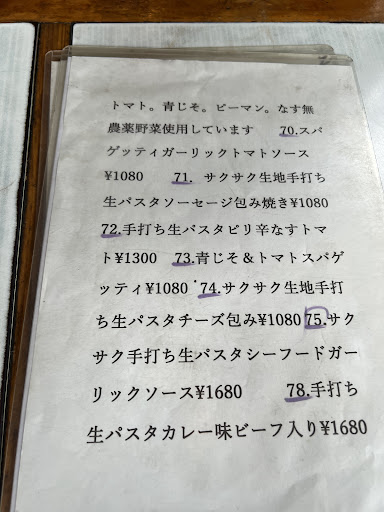 トマト。青じそ。ピーマン。なす無
農薬野菜使用しています　70.スパ
ゲッティガーリックトマトソース
¥1080　71.　サクサク生地手打ち
生パスタソーセージ包み焼き¥1080
72.手打ち生パスタピリ辛なすトマ
ト¥1300　73.青じそ＆トマトスパゲ
ッティ¥1080　74.サクサク生地手打
ち生パスタチーズ包み¥1080 75.サク
サク手打ち生パスタシーフードガー
リックソース¥1680　78.手打ち
生パスタカレー味ビーフ入り¥1680